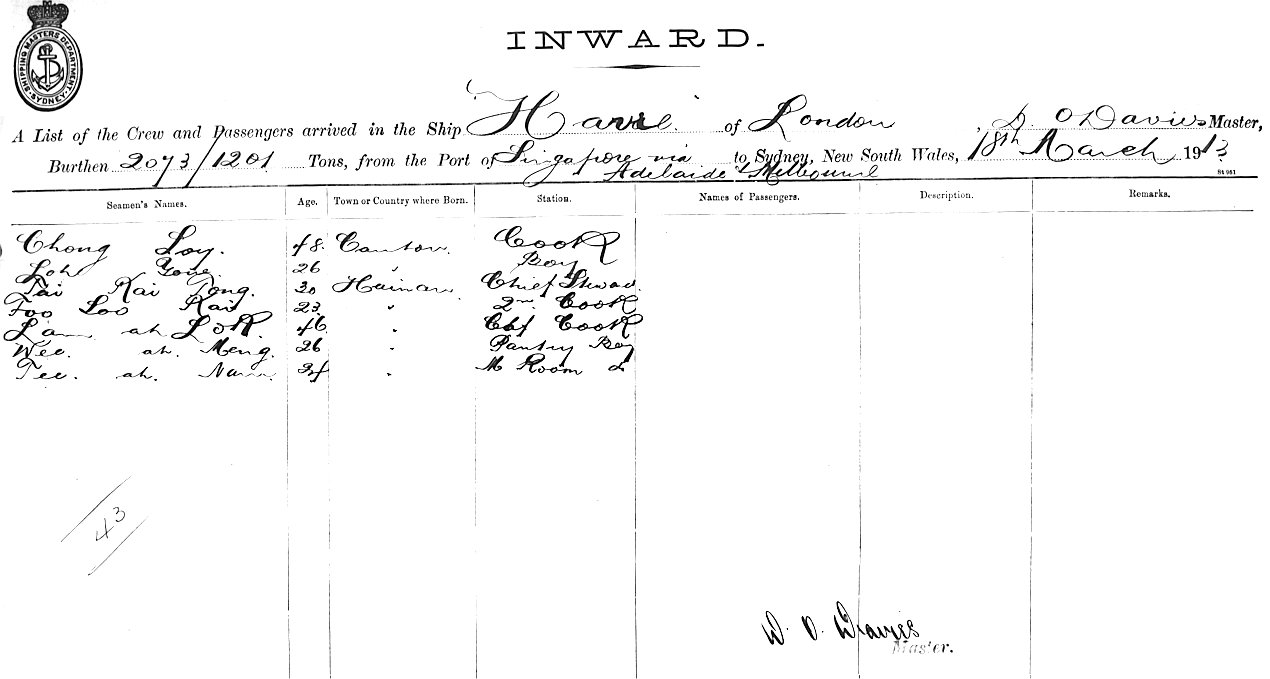 SHIPPING MASTERS DEPARTMENT
SYDNEY
INWARD.
A List of the Crew and Passengers arrived in the Ship of London, D. O Davies Master,
Burthen 2073/1201 Tons, from the Port of Singapore via to Sydney, New South Wales, 18th March 1913
Adelaide & Melbourne
St 961
Seamen's Names. Age. Town or Country where Born. Station. Names of Passengers. Description. Remarks.
Chong Loy. 48. Canton. Cook
Loh Yong. 26 " Boy
Tai Kai Tong. 30 Hainan Chief Steward.
Foo Loo Kai 23 " 2nd Cook
Lam ah Lok. 46 " Cook
Wee. ah. Meng. 26 " Pantry Boy
Tee. ah. Nam " M Room
43
W. O. Davies
Master.